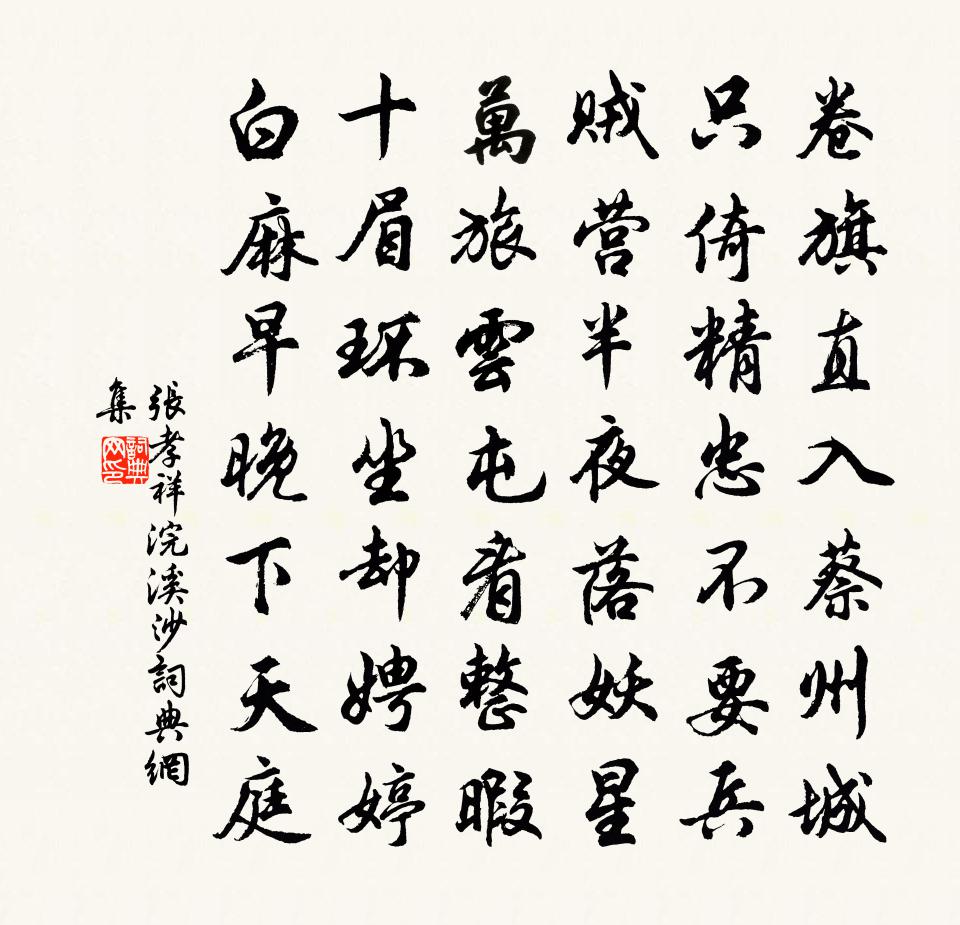 卷旗直入蔡州城
只倚精忠不要兵
贼营半夜落妖星
萬旅雲屯看整暇
十眉环坐却娉婷
白麻早晚下天庭
張孝祥浣溪沙詞典網
集
詞典网印